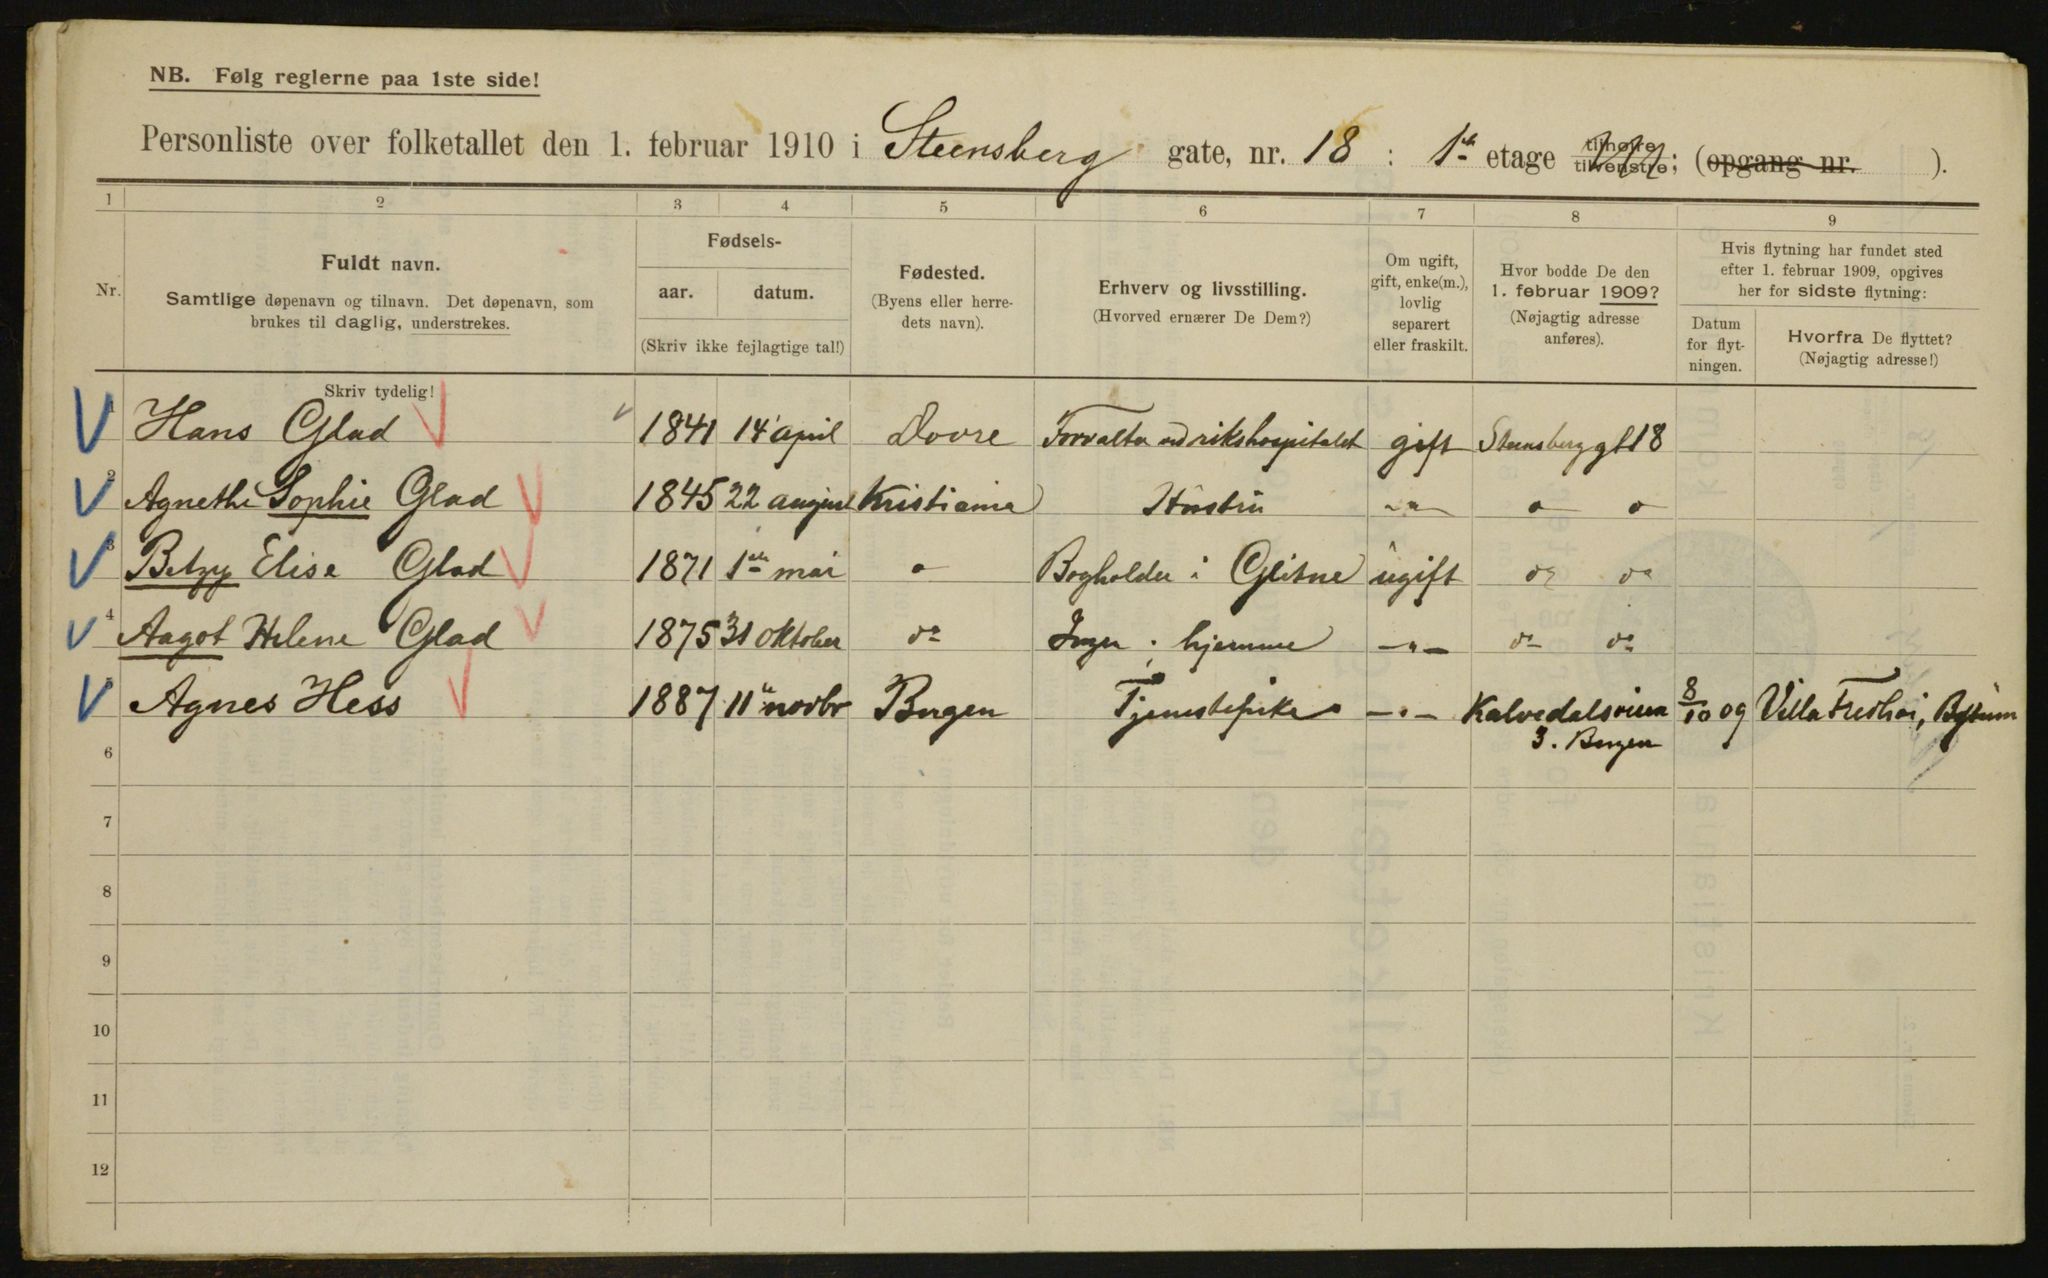 NB. Følg reglerne paa 1ste side!
Personliste over folketallet den 1. februar 1910 i Steensberg gate, nr. 18 : 1ste etage tilhøire tilvenstre; (opgang nr. ).
1 2 3 4 5 6 7 8 9
Nr.
Fuldt navn.
Samtlige døpenavn og tilnavn. Det døpenavn, som
brukes til daglig, understrekes.
Fødsels-
aar. datum.
(Skriv ikke fejlagtige tal!)
Fødested.
(Byens eller herre-
dets navn).
Erhverv og livsstilling.
(Hvorved ernærer De Dem?)
Om ugift,
gift, enke(m.),
lovlig
separert
eller fraskilt.
Hvor bodde De den
1. februar 1909?
(Nøjagtig adresse
anføres).
Hvis flytning har fundet sted
efter 1. februar 1909, opgives
her for sidste flytning:
Datum
for flyt-
ningen.
Hvorfra De flyttet?
(Nøjagtig adresse!)
Skriv tydelig!
1 Hans Glad 1841 14 april Dovre Forvalter ved rikshospitalet gift Steensberggt 18
2 Agnethe Sophie Glad 1845 22 august Kristiania Hustru -"- " "
3 Betzy Elise Glad 1871 1ste mai " Bogholder i Glitne ugift do do
4 Aagot Helene Glad 1875 31 oktober do hjemme -"- do do
5 Agnes Hess 1887 11te novbr Bergen Tjenestepike -"- Kalvedalsveien 8/10 09 Villa Fredhøi,
3. Bergen
6
7
8
9
10
11
12